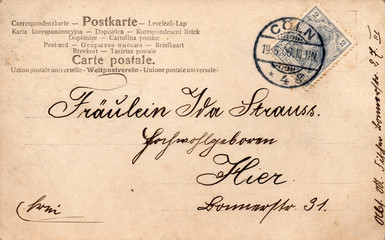 Correspondenzkarte - Postkarte - Levelező-Lap
Karta korespondencyjna - Dopisnica - Korespondenční lístek
Dopisnice - Cartolina postale
Postcard - Открытое письмо - Briefkaart
Brevkort - Tarjetas postale
Carte postale.
Union postale universelle - Weltpostverein - Unione postale universale
CÖLN
* 4 g.
2
2
Fräulein Ida Strauss.
Hochwohlgeboren
Hier
frei
Bonnerstr 31.
Bonnerstr